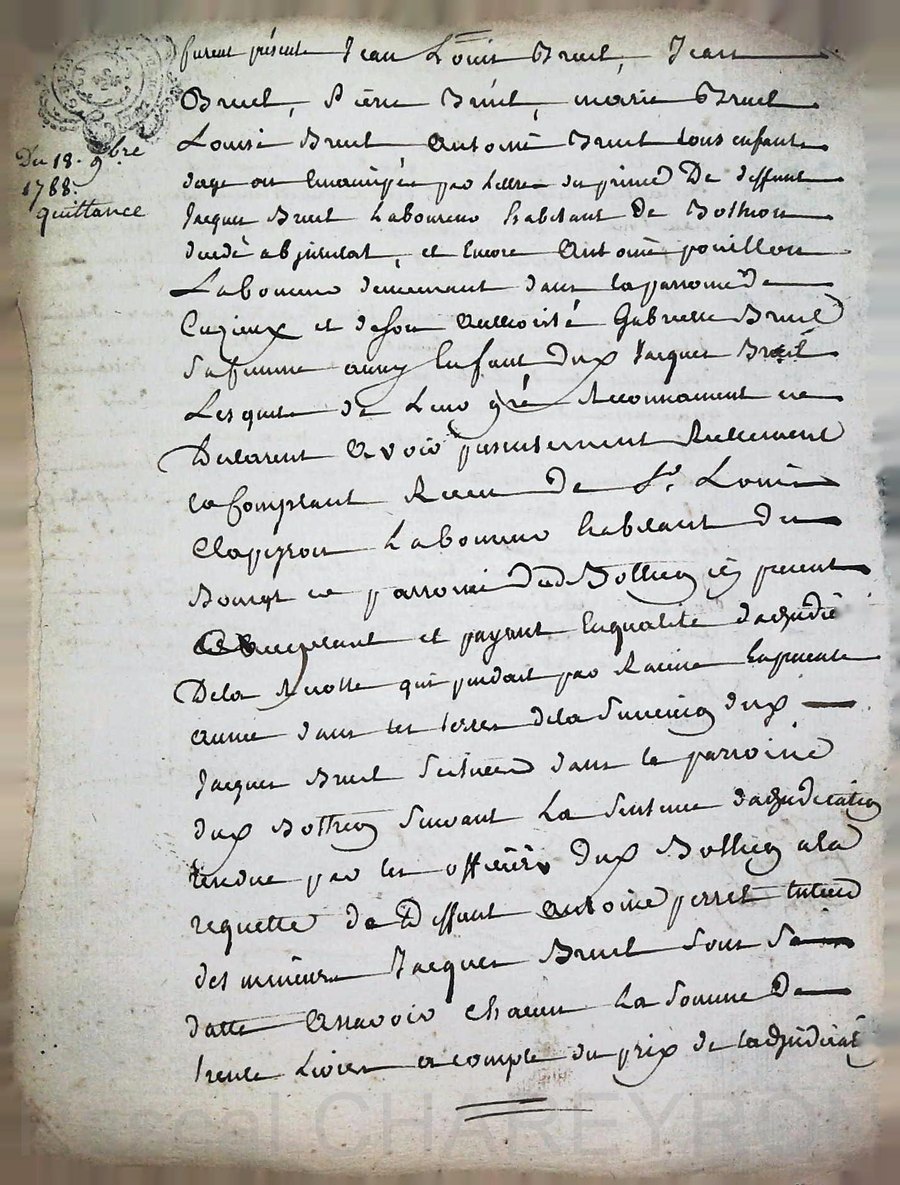 furent présents Jean Louis Bruel, Jean
Bruel, Pierre Bruel, marie Bruel
Louise Bruel Antoine Bruel tous enfants
dage ou Emancipés par Lettres du prince De deffunt
Jacques Bruel Laboureur habitant de Botheon
decedé abjntestat, et Encore Antoine pouillon
Laboureur demeurant dans la parroisse de
Cuzieux et de son authorité Gabrielle Bruel
sa femme aussy Enfant dud Jacques Bruel
Lesquels de Leur gré Reconnaissent et
Declarent avoir presentement Reellement
Comptant Receu de Sr. Louis
Clapeyron Laboureur habitant du
Bourg et parroisse dud Botheon icy present
acceptant et payant En qualité d'adjudre
De la Recolte qui pendait par Racine La presente
année dans les terres de la Succession dud
Jacques Bruel Scituées dans la parroisse
dud Botheon Suivant La Sentence dadjudication
rendue par les officiers dud Botheon a la
requette de Deffunt antoine perret tuteur
des mineurs Jacques Bruel sous Sa
datte assavoir chacun La Somme De
trente Livres a compte du prix de Ladjudicat
Du 18. 9bre
1788.
quittance
Pascal CHAREYRON